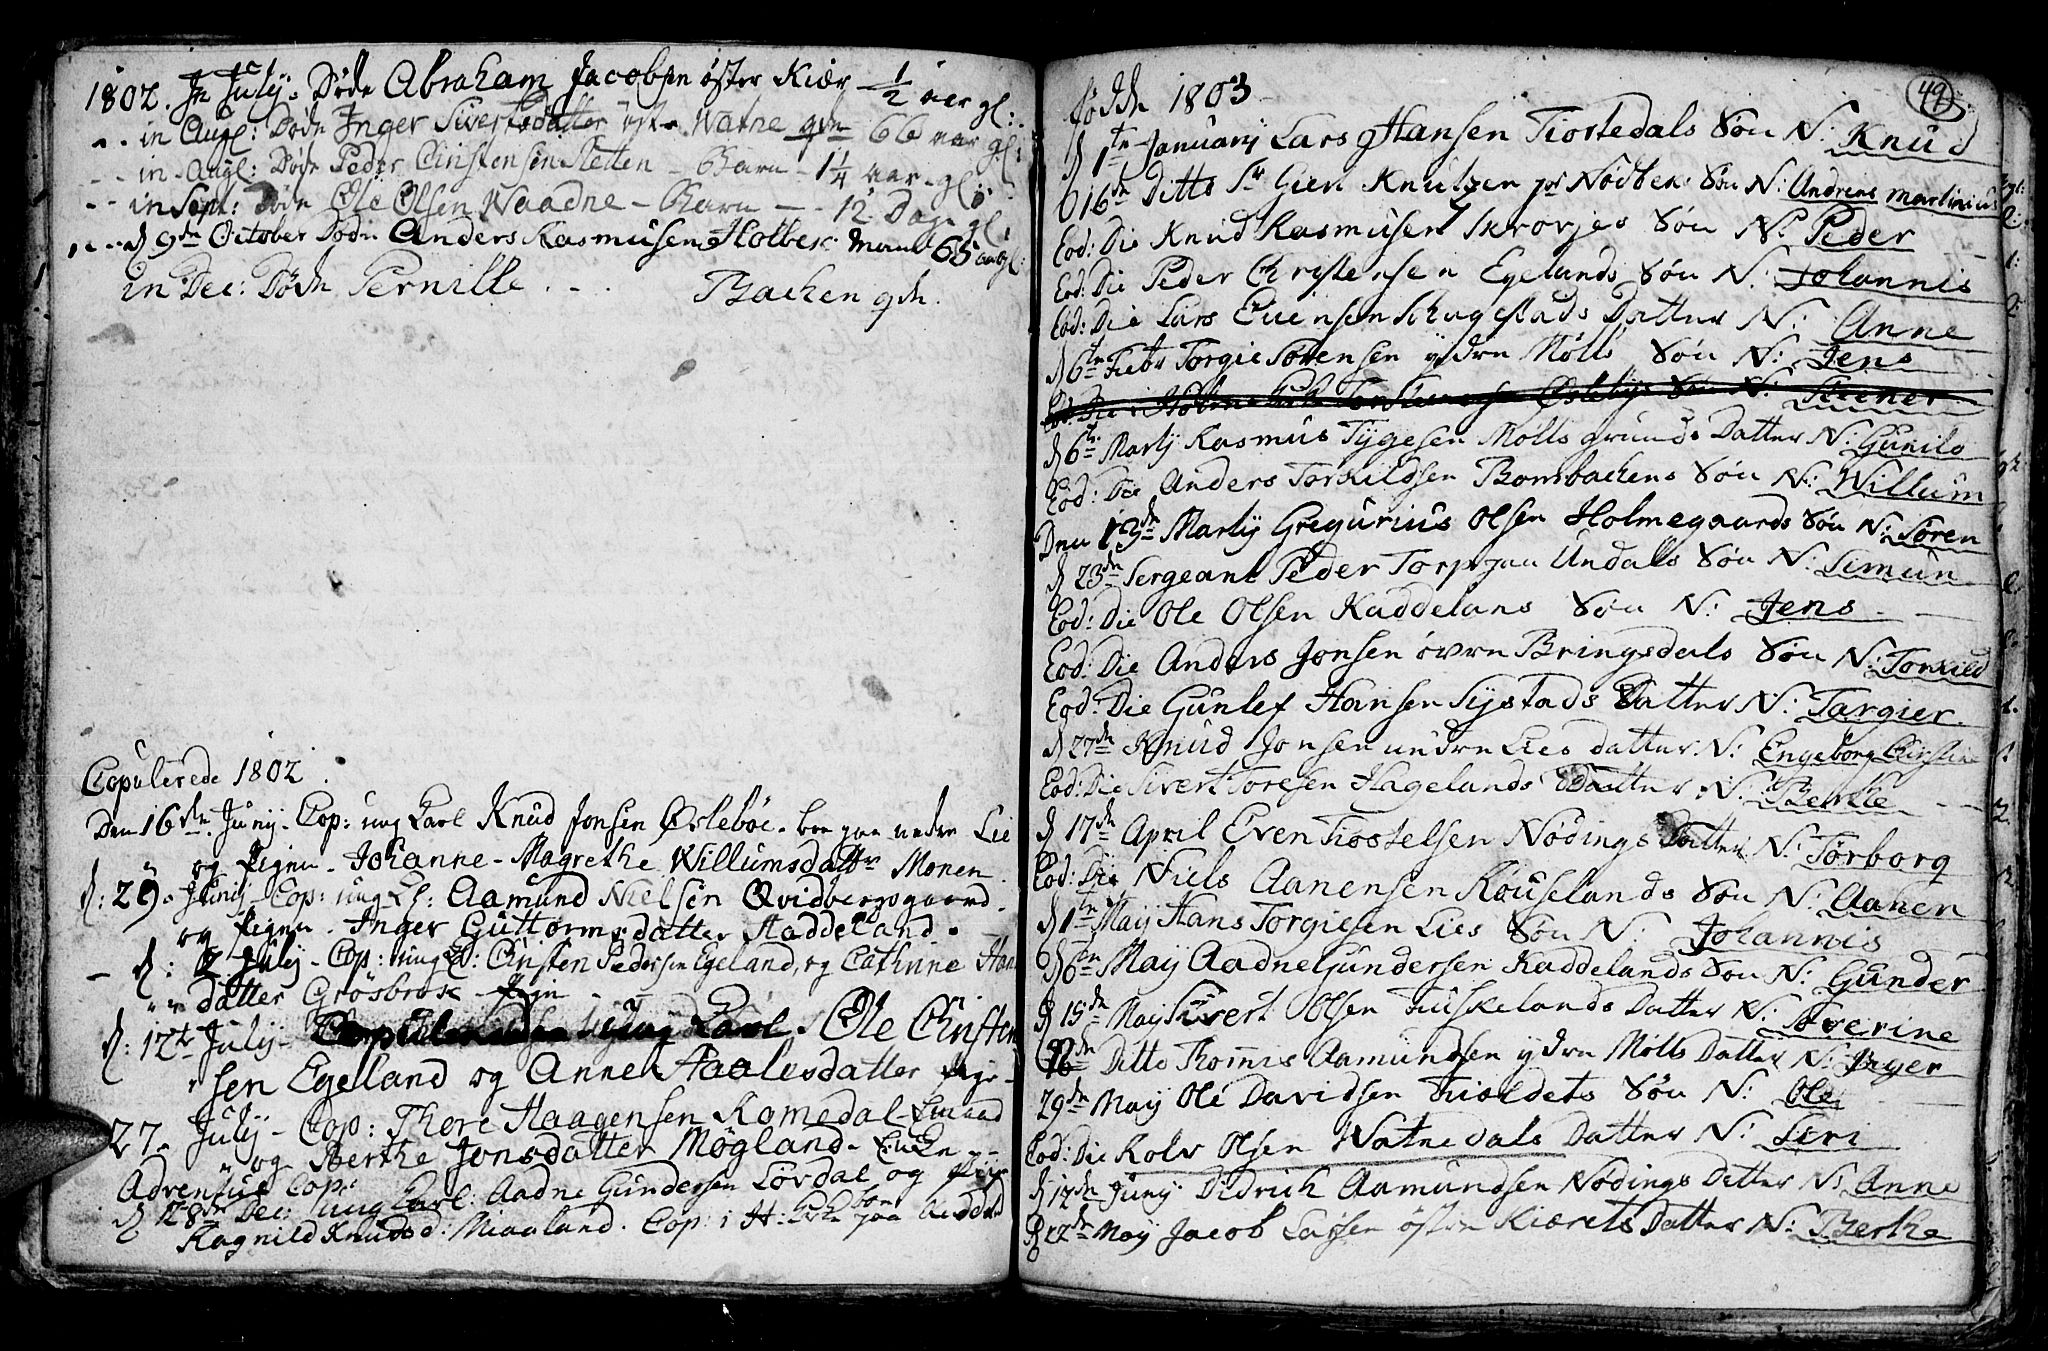 1802. In Julij. Døde Abraham Jacobsen øster Kiær ½ aar gl:
.. in Augl: Døde Inger Sivertsdatter øster Watne gde 66 aar gl:
-- in Augl: Døde Peder Christensen Sletten - Barn - 1¼ aar - gl:
-- in Sept: Døde Ole Olsen Waadne - Barn - - 12 Dage gl:
... d 9de October Døde Anders Rasmusen Holbek mand 65 aar gl:
in Dec: Døde Pernille . - - Backen gde.
Copulerede 1802.
Den 16de Junij - Cop: ung Karl Knud Jonsen Øslebøe - boe paa nedre Lie
og Pigen - Johanne - Magrethe Willumsdattr Monen
d: 29. Junij - Cop: ung K: Aamund Nielsen Qvidbergsgaard
og Pigen - Inger Guttormsdatter Haddeland.
- d: 2 Julij - Cop: ung K: Christen Pedersen Egeland, og Cathrine Han
datter Grøsbrok - Pige
d: 12te Julij - ung Karl. Ole Christen
sen Egeland og Anne Haalesdatter Pige -
27. Julij - Cop: Thore Haagensen Romedal - Enmand
" og Berthe Jonsdatter Møgland - Encke
Adventus Cop:
d 28de Dec: ung Karl: Aadne Gundersen Lordal og Pige
Ragnild Knudsd: Miaaland. Cop: i H: Kirke paa
49
fødde 1803
d 1te Januarij Lars Hansen Tiostedals Søn N: Knud
d 16de Ditto Sr Gien Knutzen Nodbek: Søn N: Andreas Martinius
Eod: Die Knud Rasmusen Skrovjes Søn N: Peder
Eod: Die Peder Christensen Egelands Søn N: Johannis
Eod: Die Lars Evensen Schagestads Datter N: Anne
d 6te Febr Torgie Sørensen ydre Mølls Søn N: Jens
Eod: Die Øslebys Søn N: Steener
d 6te Martij Rasmus Tygesen Mølls grunds Datter N: Gunild
Eod: Die Anders Torkildsen Bombackens Søn N: Willum
Den 13de Martij Gregurius Olsen Holmegaards Søn N: Søren
d 23de Sergeant Peder Torp paa Undals Søn N: Simun
Eod: Die Ole Olsen Kaddelans Søn N: Jens
Eod: Die Anders Jonsen øvre Bringsdals Søn N: Torkild
Eod: Die Gunlef Hansen Systads Datter N: Targier
d 27de Knud Jonsen undre Lies datter N: Engeborg Christine
Eod: Die Sivert Toresen Hagelands Datter N: Berthe
d 17de April Even Tiostelsen Nødings Datter N: Torborg
Eod: Die Niels Aanensen Røuselands Søn N: Aanen
d 1te Maij Hans Torgiesen Lies Søn N: Johannis
d 6te Maij Aadne Gundersen Kaddelands Søn N: Gunder
d 15de Maij Sivert Olsen Fuskelands Datter N: Severine
16de Ditto Thomis Aamundsen ydre Mølls Datter N: Inger
29de Maij Ole Davidsen Fioldets Søn N: Ole
Eod: Die Rolv Olsen Watnedals Datter N: Seri
d 12de Junij Didrich Aamundsen Nødings Datter N: Anne
d 22de Maij Jacob Larsen østre Kiærets Datter N: Berthe